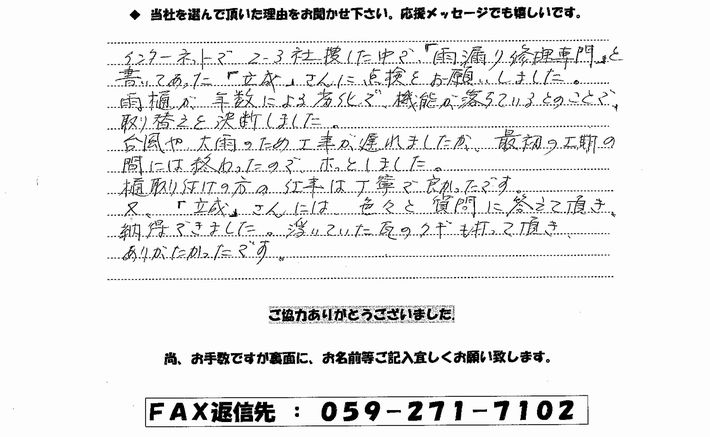 ◆ 当社を選んで頂いた理由をお聞かせ下さい。応援メッセージでも嬉しいです。
インターネットで 2-3社 捜した中で、「雨漏り修理専門」と
書いてあった「立成」さんに点検をお願いしました。
雨樋が 年数による劣化で、機能が落ちているとのことで、
取り替えを決断しました。
台風や大雨のため工事が遅れましたが、最初の工期の
間には終わったので ホッとしました。
樋取り付けの方の仕事は丁寧で良かったです。
又、「立成」さんには 色々と質問に答えて頂き、
納得できました。浮いていた瓦のクギも打って頂き、
ありがたかったです。
ご協力ありがとうございました。
尚、お手数ですが裏面に、お名前等ご記入宜しくお願い致します。
FAX返信先 : 059-271-7102